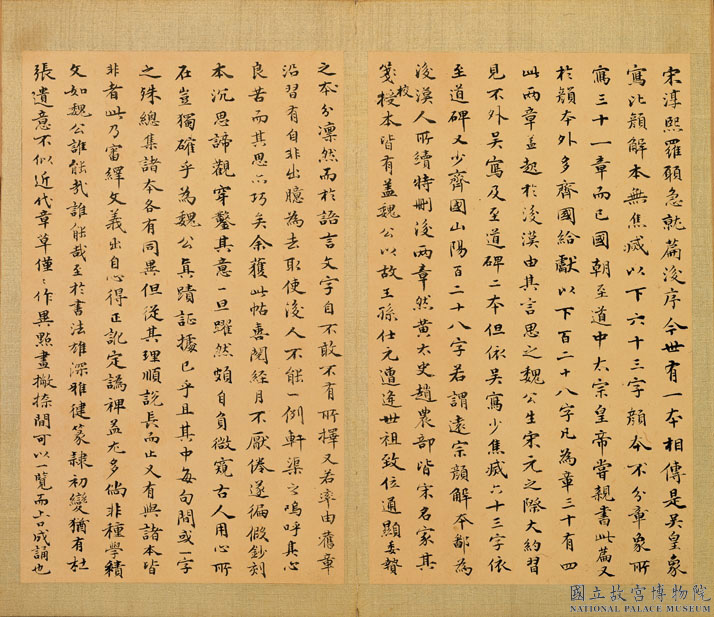 宋淳熙羅願急就篇後序今世有一本相傳是吳皇象
寫比顏解本無焦滅以下六十三字顏本不分章象所
寫三十一章而已國朝至道中太宗皇帝嘗親書此篇又
於顏本外多齊國給獻以下百二十八字凡為章三十有四
此兩章蓋起於後漢由其言思之魏公生宋元之際大約習
見不外吳寫及至道碑二本但依吳寫少焦滅六十三字依
至道碑又少齊國山陽百二十八字若謂遠宗顏解本鄙為
後漢人所續特刪後兩章然黃太史趙農部皆宋名家其
箋校授本皆有蓋魏公以故王孫仕元遭逢世祖致位通顯委贄
之本分凜然而於語言文字自不敢不有所擇又若率由舊章
沿習有自非出臆為去取使後人不能一例軒渠之嗚呼其心
良苦而其思亦巧矣余獲此帖喜閱經月不厭倦遂徧假鈔刻
本沉思諦觀穿鑿其意一旦躍然頗自負微窺古人用心所
在豈獨確乎為魏公真蹟証據已乎且其中每句間或一字
之殊總集諸本各有同異但從其理順說長而止又有與諸本皆
非者此乃審繹文義出自心得正訛定譌裨益尤多倘非種學績
文如魏公誰能哉誰能哉至於書法雄深雅健篆隸初變猶有杜
張遺意不似近代章草僅僅作異點畫撇捺間可以一覽而上口成誦也
國立故宮博物院
NATIONAL PALACE MUSEUM